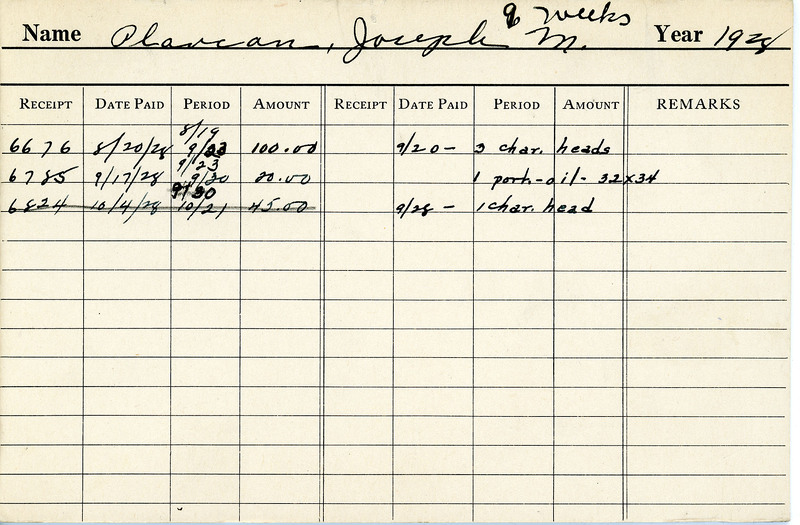 9 weeks
Name Plavcan, Joseph M. Year 1928
RECEIPT DATE PAID PERIOD AMOUNT RECEIPT DATE PAID PERIOD AMOUNT REMARKS
8/19
6676 8/20/28 9/23 100.00 9/20- 3 char. heads
9/23
6785 9/17/28 9/30 20.00 1 port-oil- 32x34
9/30
6824 10/4/28 10/21 45.00 9/28- 1 char. head